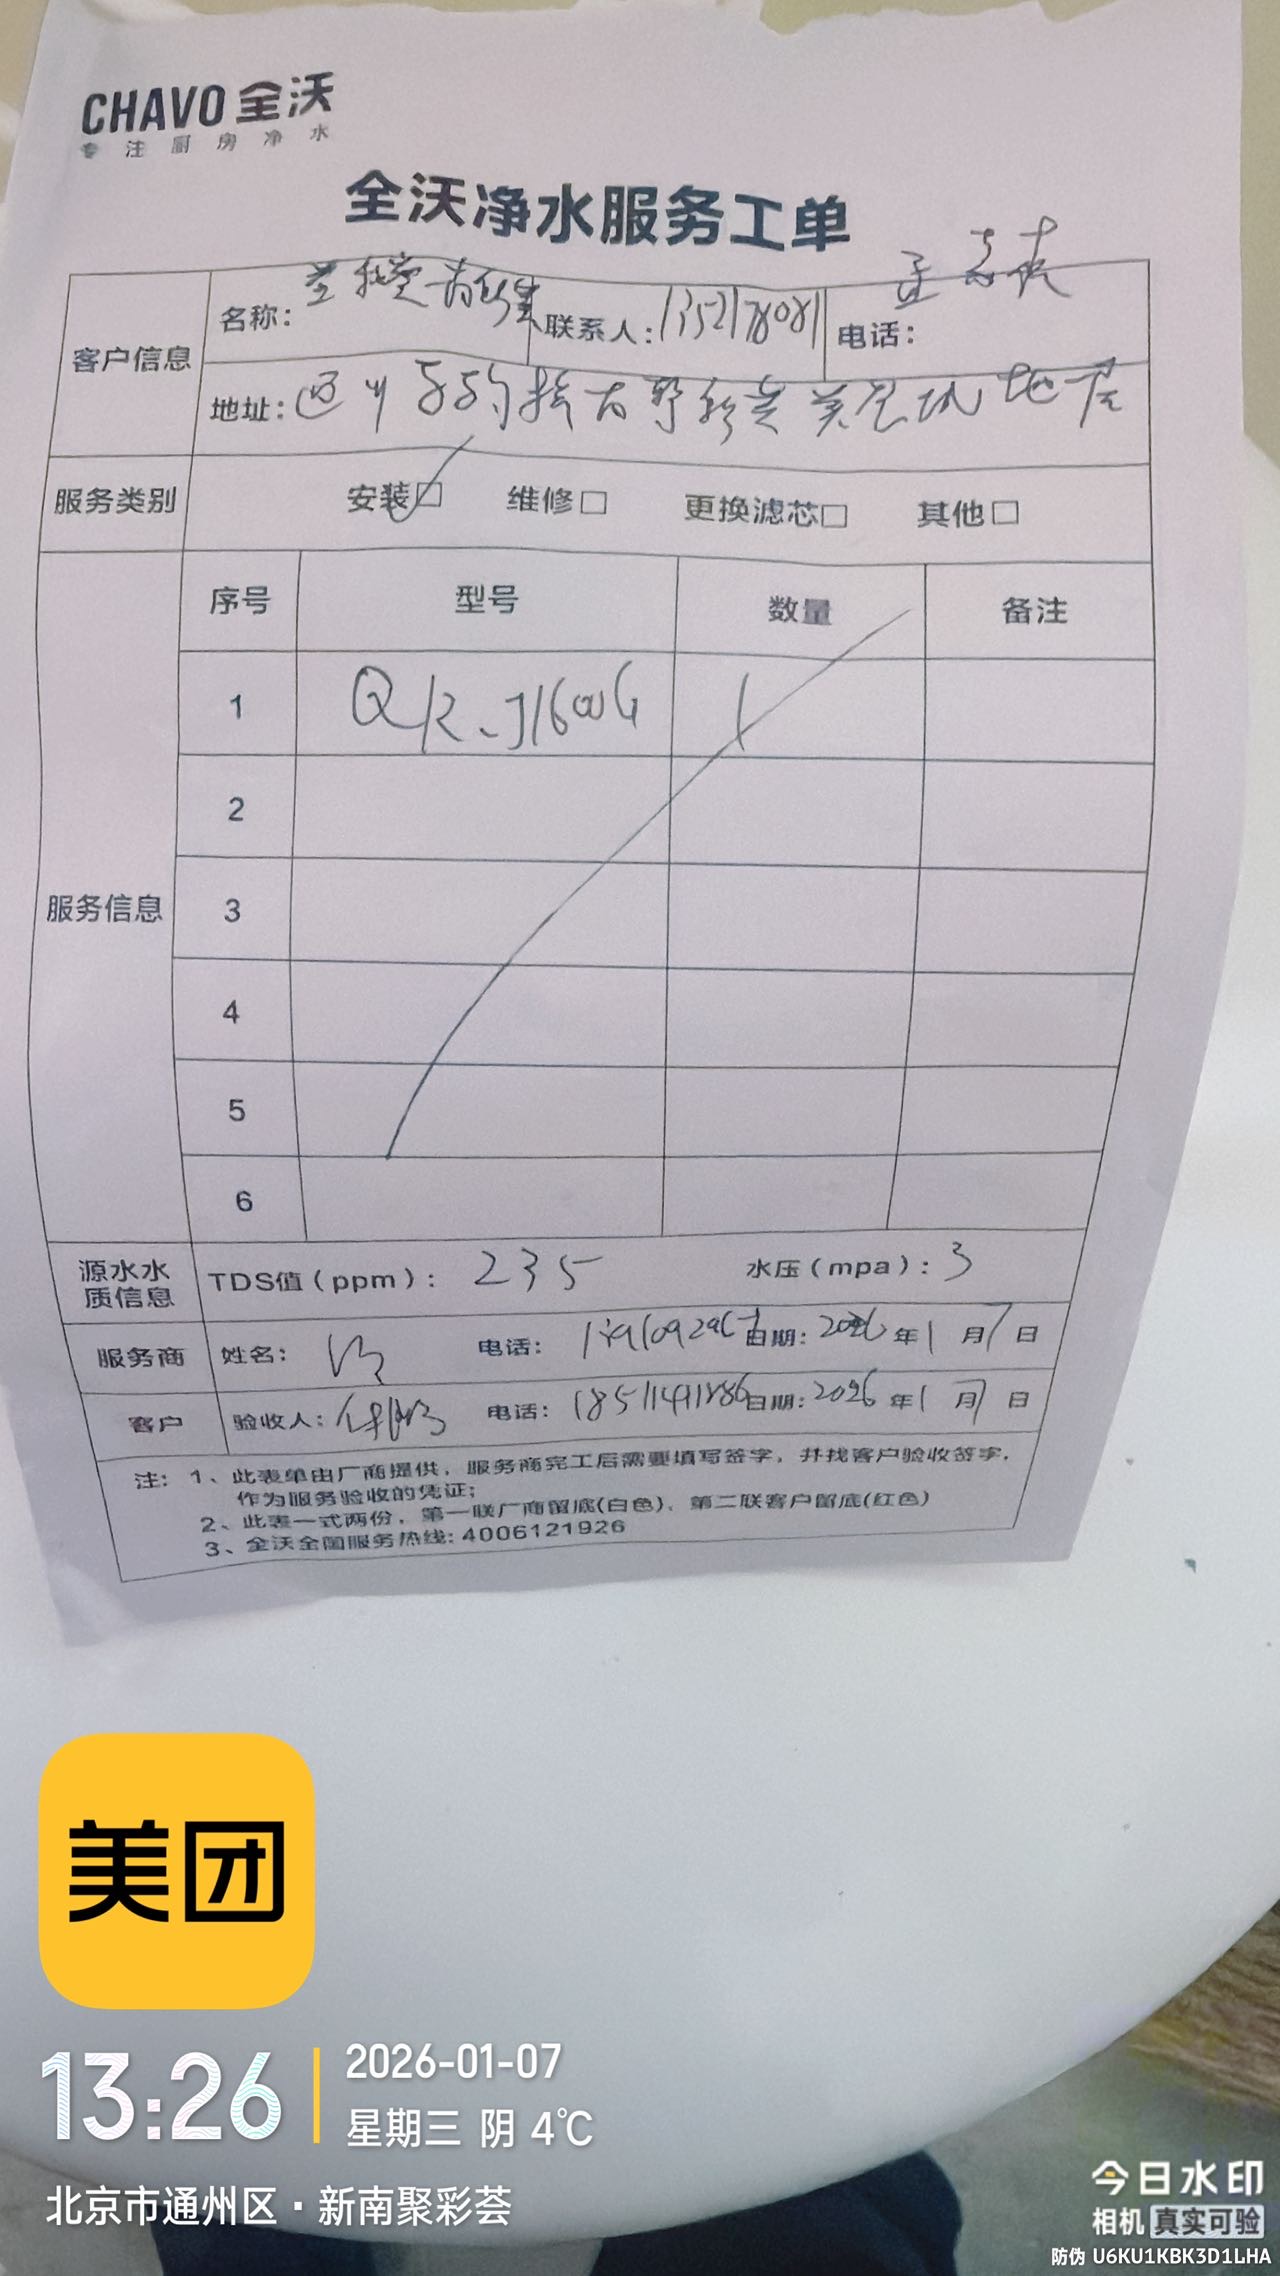 CHAVO 全沃
专注厨房净水
全沃净水服务工单
客户信息 名称： 联系人： 电话：
地址：
服务类别 安装□ 维修□ 更换滤芯□ 其他□
服务信息 序号 型号 数量 备注
1 QR-J1600G 1
2
3
4
5
6
源水水质信息 TDS值（ppm）：235 水压（mpa）：3
服务商 姓名： 电话： 日期：2026年1月7日
客户 验收人： 电话： 日期：2026年1月7日
注：1、此表单由厂商提供，服务商完工后需要填写签字，并找客户验收签字，
作为服务验收的凭证；
2、此表一式两份，第一联厂商留底(白色)、第二联客户留底(红色)
3、全沃全国服务热线：4006121926
美团
13:26
2026-01-07
星期三 阴 4℃
北京市通州区·新南聚彩荟
今日水印
相机 真实可验
防伪 U6KU1KBK3D1LHA